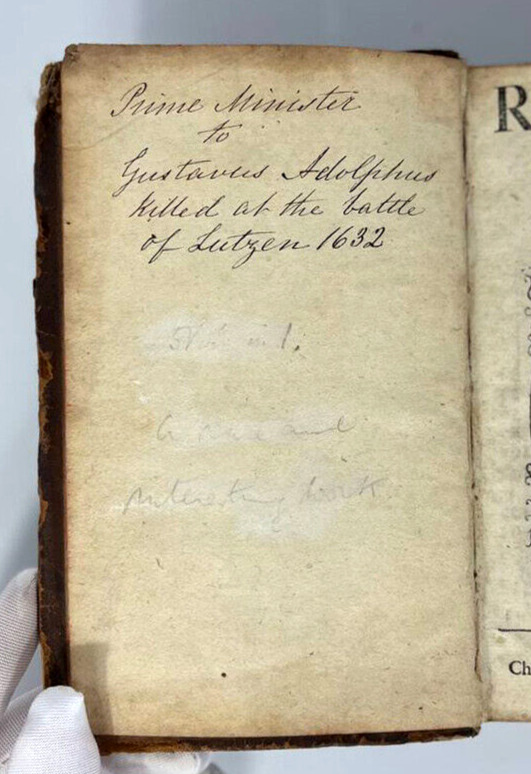 Prime Minister
to
Gustavus Adolphus
killed at the battle
of Lutzen 1632
in 1.
a rare and
interesting work
R
Ch